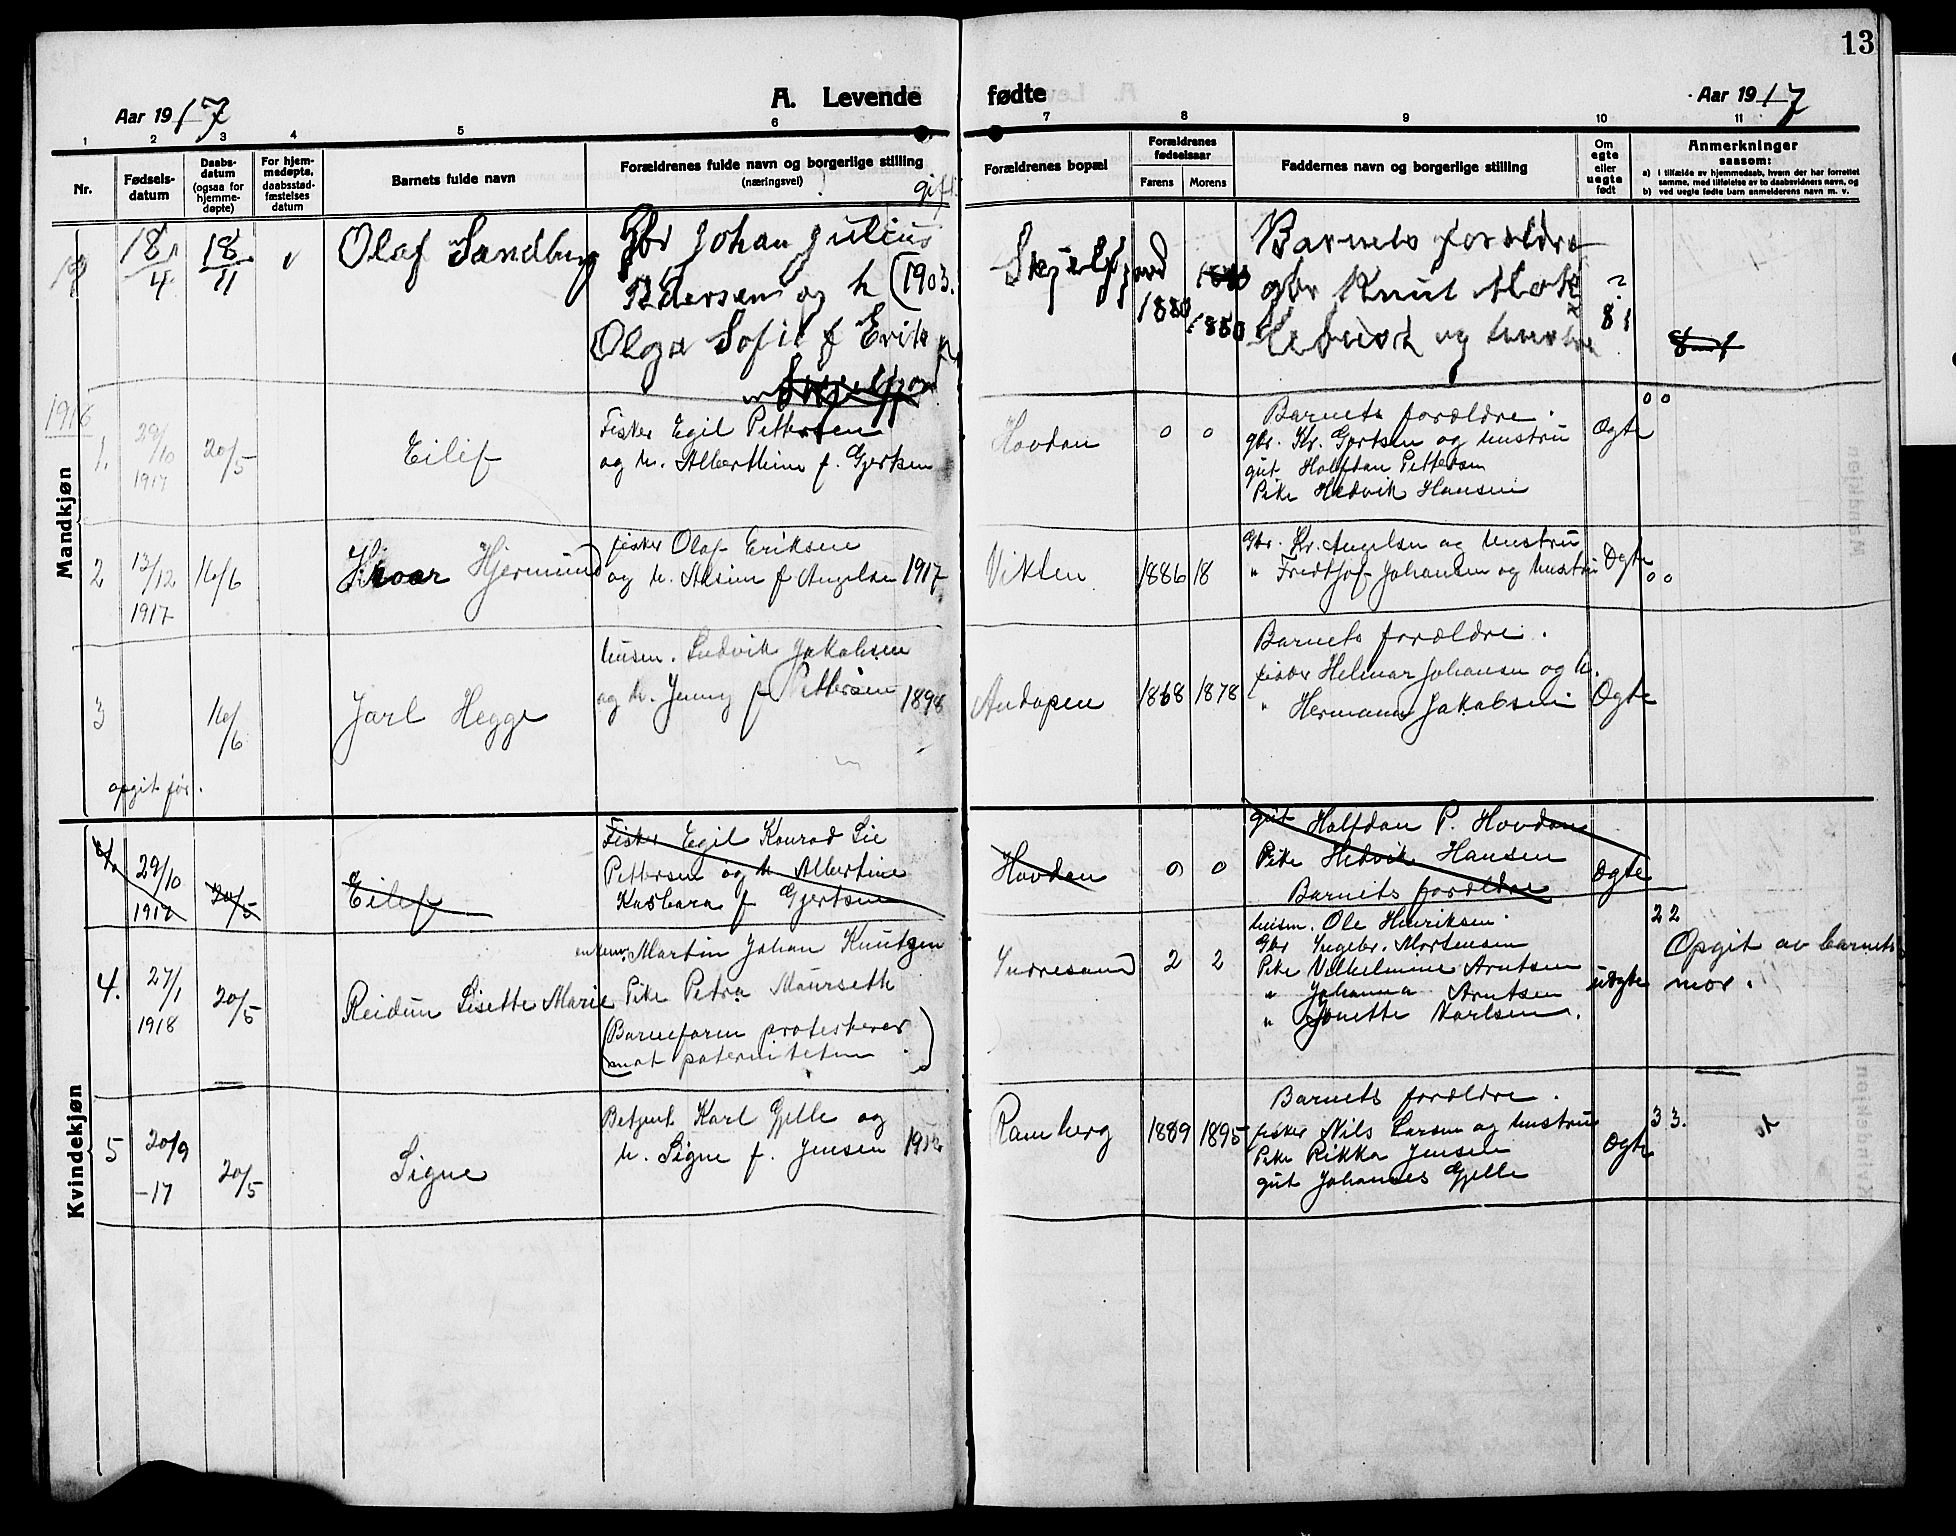 13
Aar 1917
A. Levende fødte
Aar 1917
1 2 3 4 5 6 7 8 9 10 11
Nr.
Fødsels-datum
Daabs-datum (ogsaa for hjemme-døpte)
For hjem-medøpte, daabsstad-fæstelses datum
Barnets fulde navn
Forældrenes fulde navn og borgerlige stilling (næringsvei)
gift
Forældrenes bopæl
Forældrenes fødselsaar
Farens Morens
Faddernes navn og borgerlige stilling
Om egte eller uegte født
Anmerkninger saasom:
a) i tilfælde av hjemmedaab, hvem der har forrettet samme, med tilføielse av to daabsvidners navn, og
b) ved uegte fødte barn anmelderens navn m. v.
Mandkjøn
18/4
18/11
Olaf Sandburg
Gbr Johan Julius
og h (1903.
Olga Sofie f Erik
Skjelfjord
1880
1880
Barnets forældre
gbr Knut
og hustru
8 1
1916
1.
29/10 1917
20/5
Eilif
Fisker Egil Pettersen
og h. Alberthine f. Gjertsen
Hovdan
0 0
Barnets forældre.
gbr. Kr. Gjertsen og hustru
gut Halfdan Pettersen
Pike Hedvik Hansen
Ogte
0 0
2
13/12 1917
16/6
Hjermund
fisker Olaf Eriksen
og h. f Angelsen 1917
Vikten
1886 18
Gbr. Kr. Angelsen og hustru
" Fredthjof Johansen og hustru
Ogte
0 0
3
16/6
Jarl Hegge
husm. Ludvik Jakobsen
og h. Jenny f Pettersen 1898
Andopen
1868 1878
Barnets forældre.
fisker Helmar Johansen og h.
" Hermann Jakobsen
Ogte
opgit før.
Kvindekjøn
29/10 1917
20/5
Eilif
Fisker Egil Konrad Lie
Pettersen og h Albertine
Kasbara f Gjertsen
Hovdan
0 0
gut Halfdan P. Hovdan
Pike Hedvik Hansen
Barnets forældre
Ogte
4.
27/1 1918
20/5
Reidun Lisette Marie
enkem. Martin Johan Knutsen
Pike Petra Maurseth
(Barnefaren protesterer
mot paterniteten.)
Indresand
2 2
husm. Ole Henriksen.
Gbr Ingebr. Mortensen
Pike Vilhelmine Arntsen
" Johanna Arntsen
" Jonette Karlsen.
uogte
2 2
Opgit av barnets
mor.
5
20/9 -17
20/5
Signe
Betjent Karl Gjelle og
h. Signe f. Jensen
Ramberg
1889 1895
Barnets forældre.
fisker Nils Larsen og hustru
Pike Rikka Jensen
gut Johannes Gjelle
Ogte
3 3.